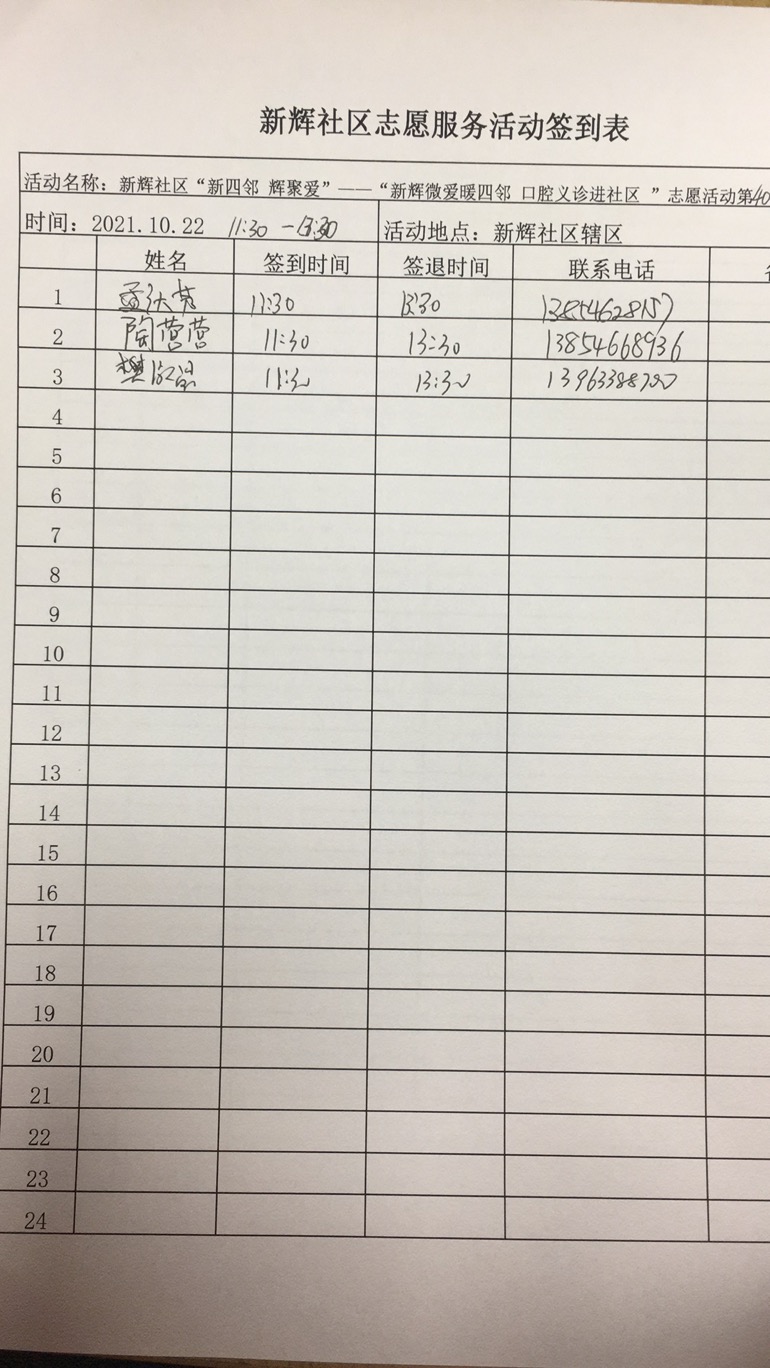 新辉社区志愿服务活动签到表
活动名称：新辉社区“新四邻 辉聚爱”——“新辉微爱暖四邻 口腔义诊进社区 ”志愿活动第40
时间：2021.10.22 11:30 —13:30 活动地点：新辉社区辖区
姓名 签到时间 签退时间 联系电话
1 11:30 13:30 13854628157
2 陶营营 11:30 13:30 13854668936
3 樊 11:30 13:30
4
5
6
7
8
9
10
11
12
13
14
15
16
17
18
19
20
21
22
23
24